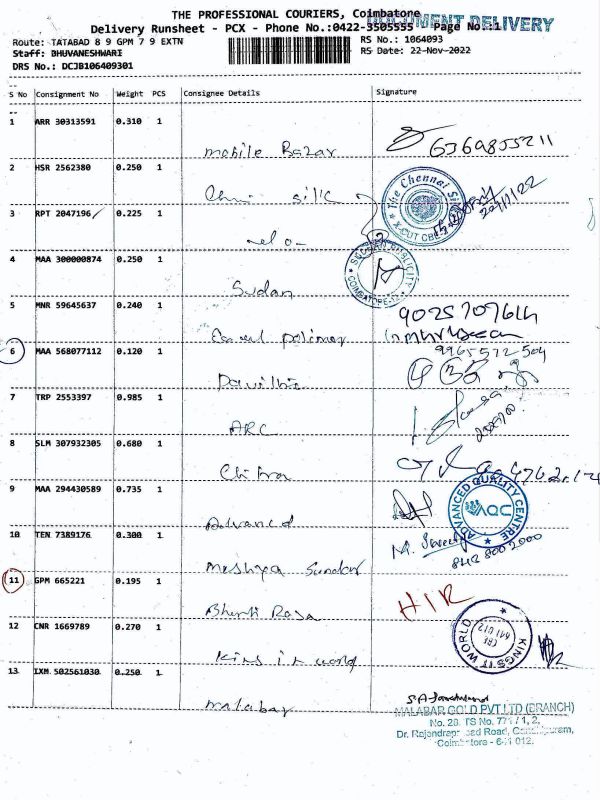 THE PROFESSIONAL COURIERS, Coimbatore
DOCUMENT DELIVERY
Delivery Runsheet - PCX - Phone No.:0422-3505555 Page No.:1
Route: TATABAD 8 9 GPM 7 9 EXTN RS No.: 1064093
Staff: BHUVANESHWARI RS Date: 22-Nov-2022
DRS No.: DCJB106409301
S No Consignment No Weight PCS Consignee Details Signature
1 ARR 30313591 0.310 1
mobile Bazar 6369855211
2 HSR 2562380 0.250 1
silk The Chennai Sil
X-CUT CBE 22/11/22
3 RPT 2047196 0.225 1
4 MAA 300000874 0.250 1
Sudan PUBLICITY COIMBATORE-12
5 MNR 59645637 0.240 1
polimer 9025707614
6 MAA 568077112 0.120 1
9965572504
7 TRP 2553397 0.985 1
ARC
8 SLM 307932305 0.680 1
Chitra
9 MAA 294430589 0.735 1
Advanced ADVANCED QUALITY CENTRE AQC
10 TEN 7389176 0.300 1
Sundar M. 842 800 2000
11 GPM 665221 0.195 1
Bharti Rasa HIR
12 CNR 1669789 0.270 1
Kings it world KINGS IT WORLD CBE 641 012
13 IXM 502561030 0.250 1
malabar
MALABAR GOLD PVT LTD (BRANCH)
No. 28, TS No. 771 / 1, 2,
Dr. Rajendraprasad Road, Gandhipuram,
Coimbatore - 641 012.